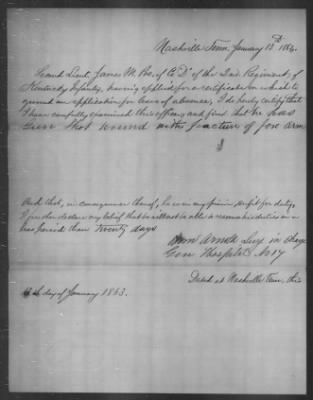 Nashville Tenn January 13th 1863.
Second Lieut. James M. of Co "D" of the 2nd Regiment of
Kentucky Infantry, having applied for a certificate on which to
ground an application for leave of absence, I do hereby certify that
I have carefully examined this officer, and find that he has
Gun Shot wound with fracture of fore arm
And that, in consequence thereof, he is in my opinion unfit for duty,
I further declare my belief that he will not be able to resume his duties in a
less period than Twenty days
Arnold Surg in charge
Gen Hospital No 7
Dated at Nashville Tenn, this
13th day of January 1863.